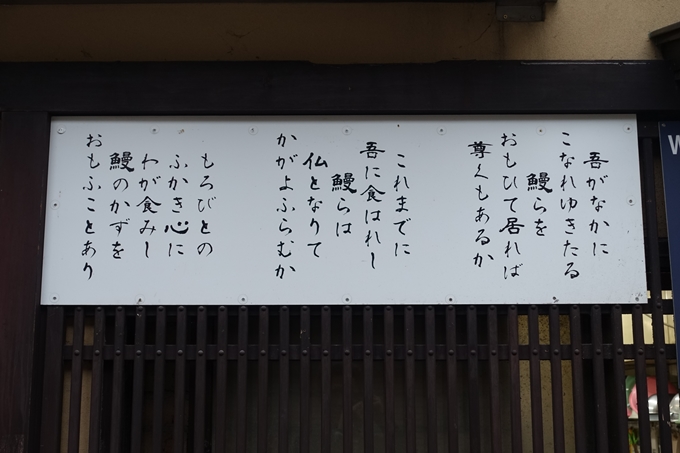 吾がなかに
こなれゆきたる
鰻らを
おもひて居れば
尊くもあるか
これまでに
吾に食はれし
鰻らは
仏となりて
かがよふらむか
もろびとの
ふかき心に
わが食みし
鰻のかずを
おもふことあり
W